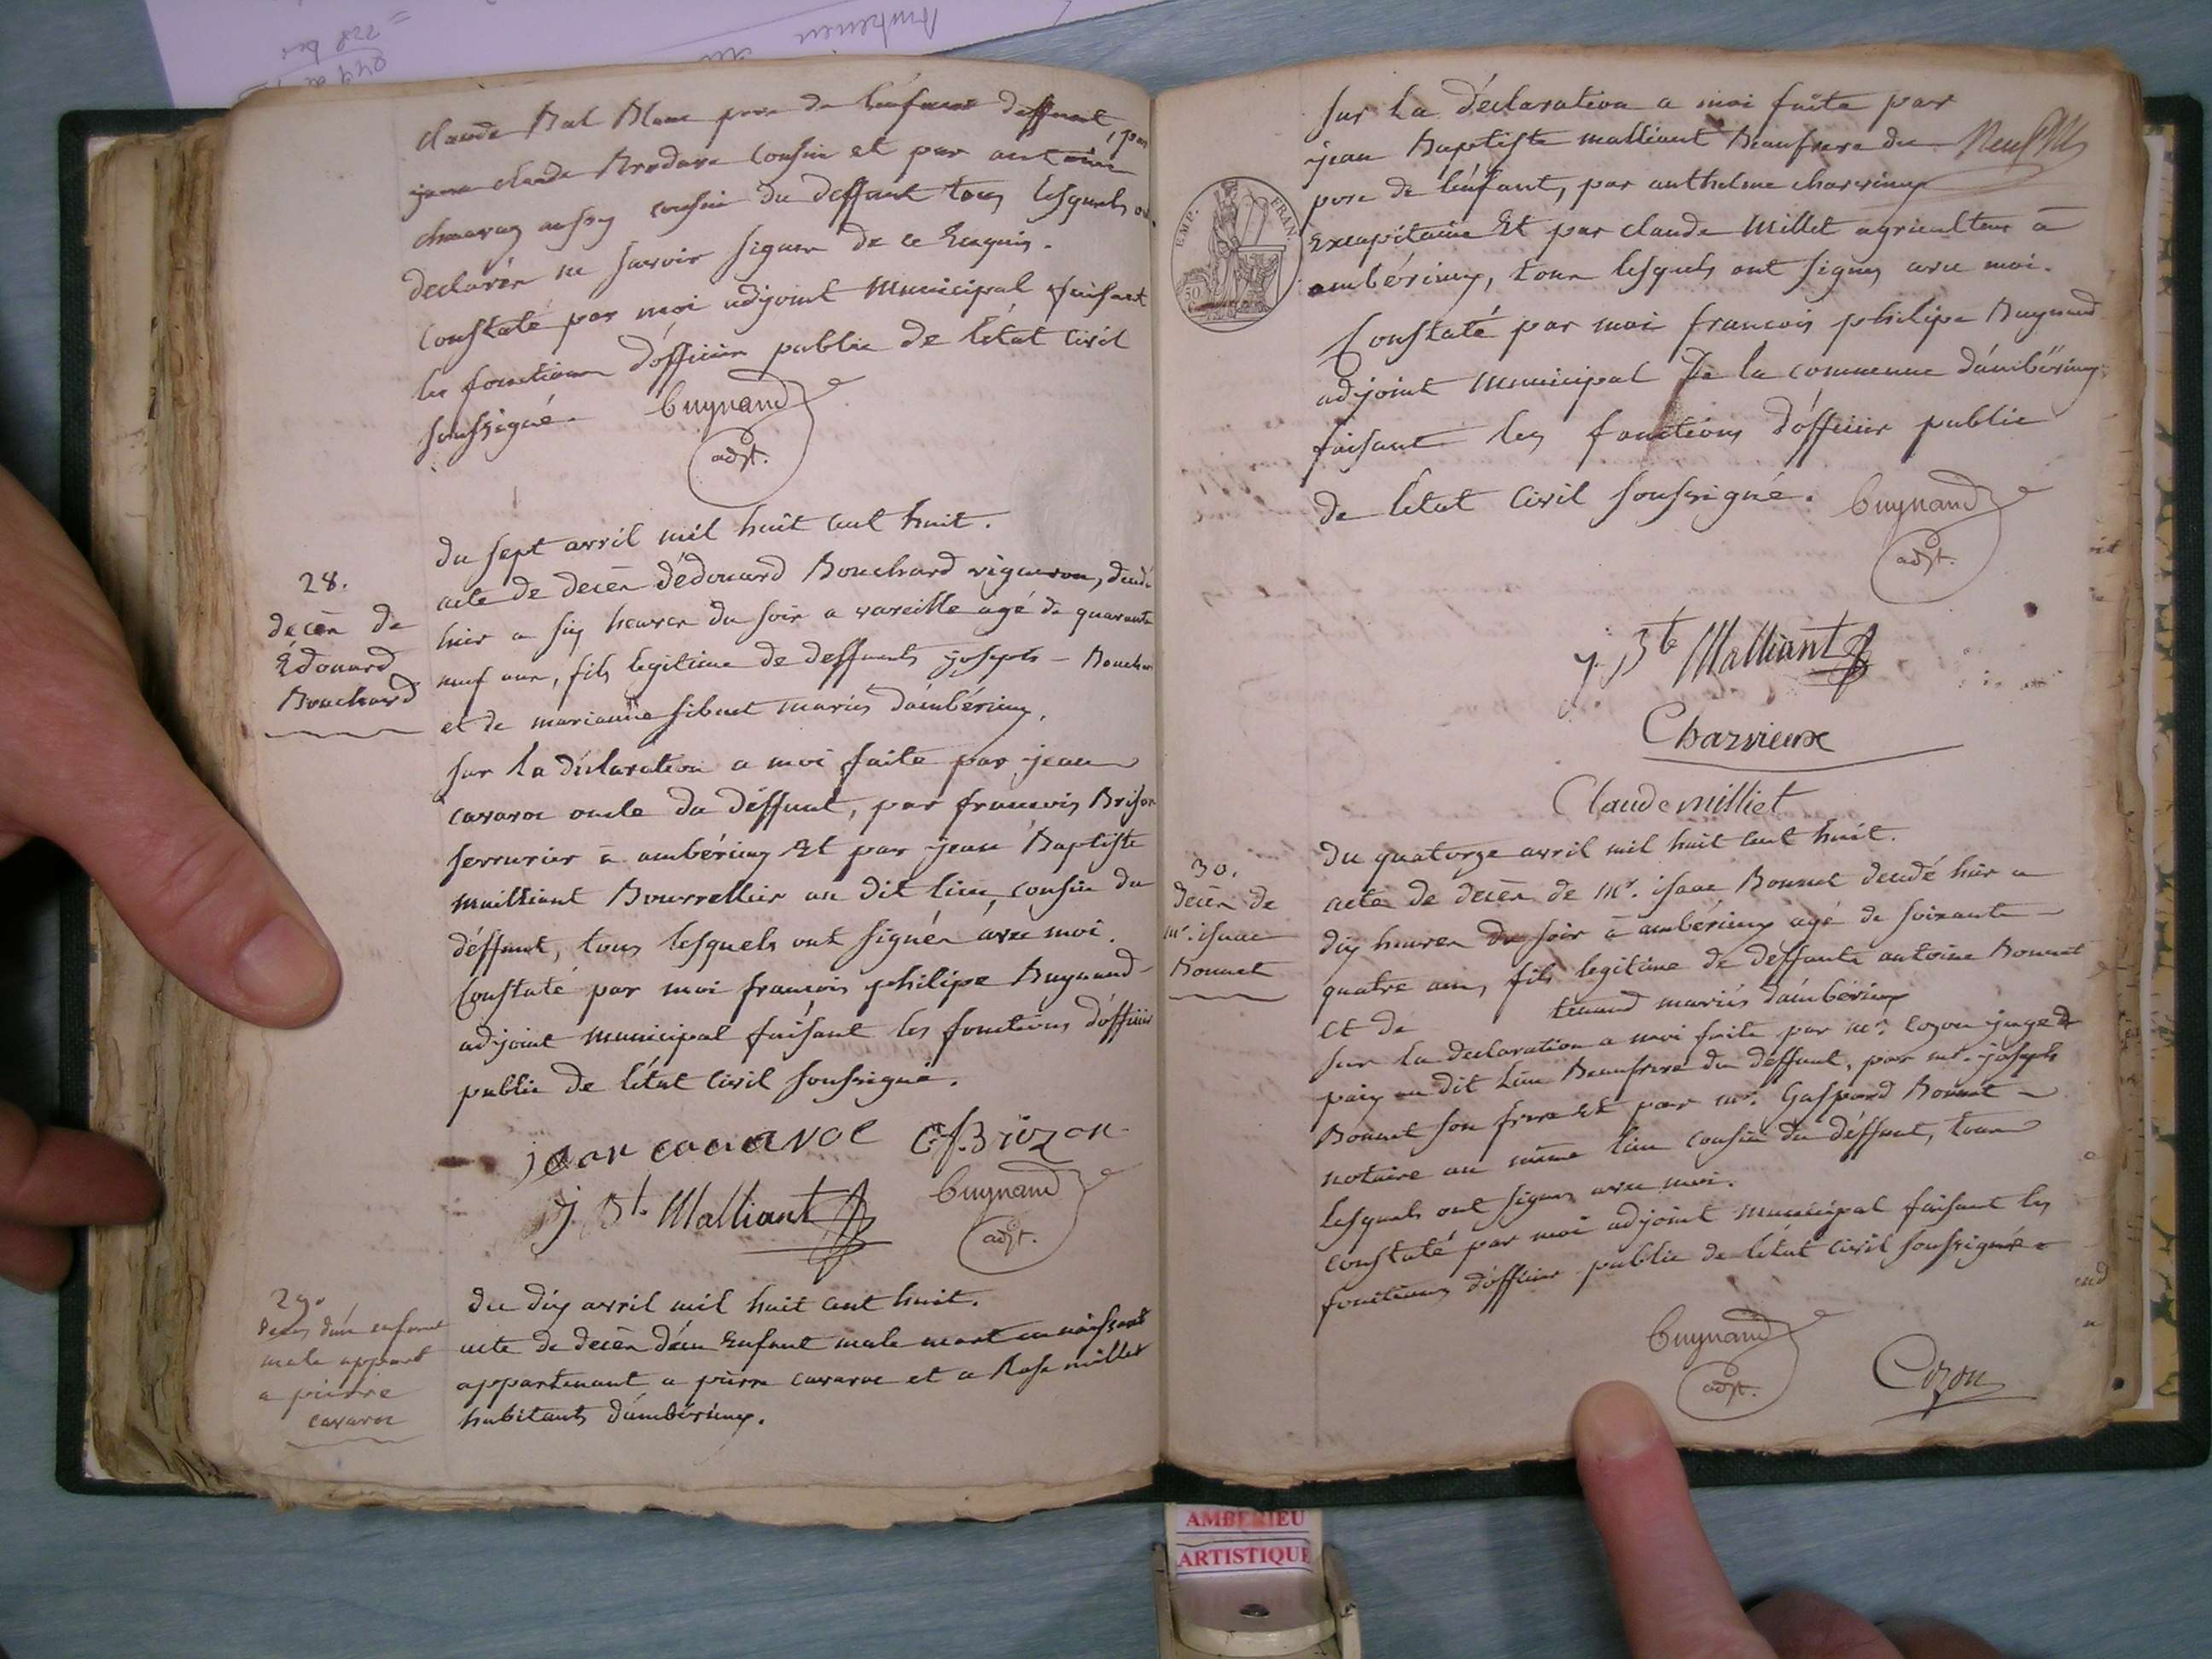 claude Bal Blanc pere de l'enfant deffunt, par
jean claude Brodare cousin et par antoine
chavaray aussy cousin du deffunt tous lesquels on
declarér ne savoir signer de ce Enquis.
Constaté par moi adjoint Municipal faisant
les fonctions d'officier public de l'état Civil
soussigné.
Buynand
adjt.
28.
decén de
Édouard
Bouchard
du sept avril mil huit cent huit.
acte de decén d'édouard Bouchard vigneron, decedé
hier a six heures du soir a vareille agé de quarante
neuf ans, fils legitime de deffunts joseph - Bouchar
et de marianne sibuet mariés d'ambérieux.
sur la déclaration a moi faite par jean
cavaroc oncle du deffunt, par francois Brison
serrurier à ambérieux Et par jean Baptiste
mailliant Bourrellier au dit lieu, cousin du
déffunt, tous lesquels ont signér avec moi.
Constaté par moi francois philipe Buynand
adjoint municipal faisant les fonctions d'officier
public de l'état Civil soussigné.
jean cavaroc C.f. Brizon
j. Bte. Malliant Buynand
adjt.
29.
Decés d'un enfant
male appart
a pierre
cavaroc
du dix avril mil huit cent huit.
acte de decén d'un Enfant male mort en naissant
appartenant a pierre cavaroc et a Rose millet
habitants d'ambérieux.
sur la déclaration a moi faite par
jean Baptiste malliant Beaufrere du
pere de l'enfant, par anthelme charvieux
Excapitaine Et par claude Millet agriculteur à
ambérieux, tous lesquels ont signez avec moi.
EMP. FRAN.
50
Constaté par moi francois philipe Buynand
adjoint municipal De la commune d'ambérieux
faisant les fonctions d'officier public
de l'état Civil soussigné.
Buynand
adjt.
j. Bte Malliant
Charvieux
Claude milliet
30.
Decén de
mr. isaac
Bonnet
du quatorze avril mil huit cent huit.
acte de decén de Mr. isaac Bonnet decedé hier a
dix heures du soir à ambérieux agé de soixante
quatre ans, fils legitime de deffunts antoine Bonnet
et de tenand mariés d'ambérieux
sur la declaration a moi faite par mr. Cozon juge de
paix au dit lieu Beaufrere du deffunt, par mr. joseph
Bonnet son frere Et par mr. Gaspard Bonnet
notaire au même lieu cousin du déffunt, tous
lesquels ont signez avec moi.
constaté par moi adjoint municipal faisant les
fonctions d'officier public de l'état civil soussigné
Buynand
adjt.
Cozon
AMBERIEU
ARTISTIQUE